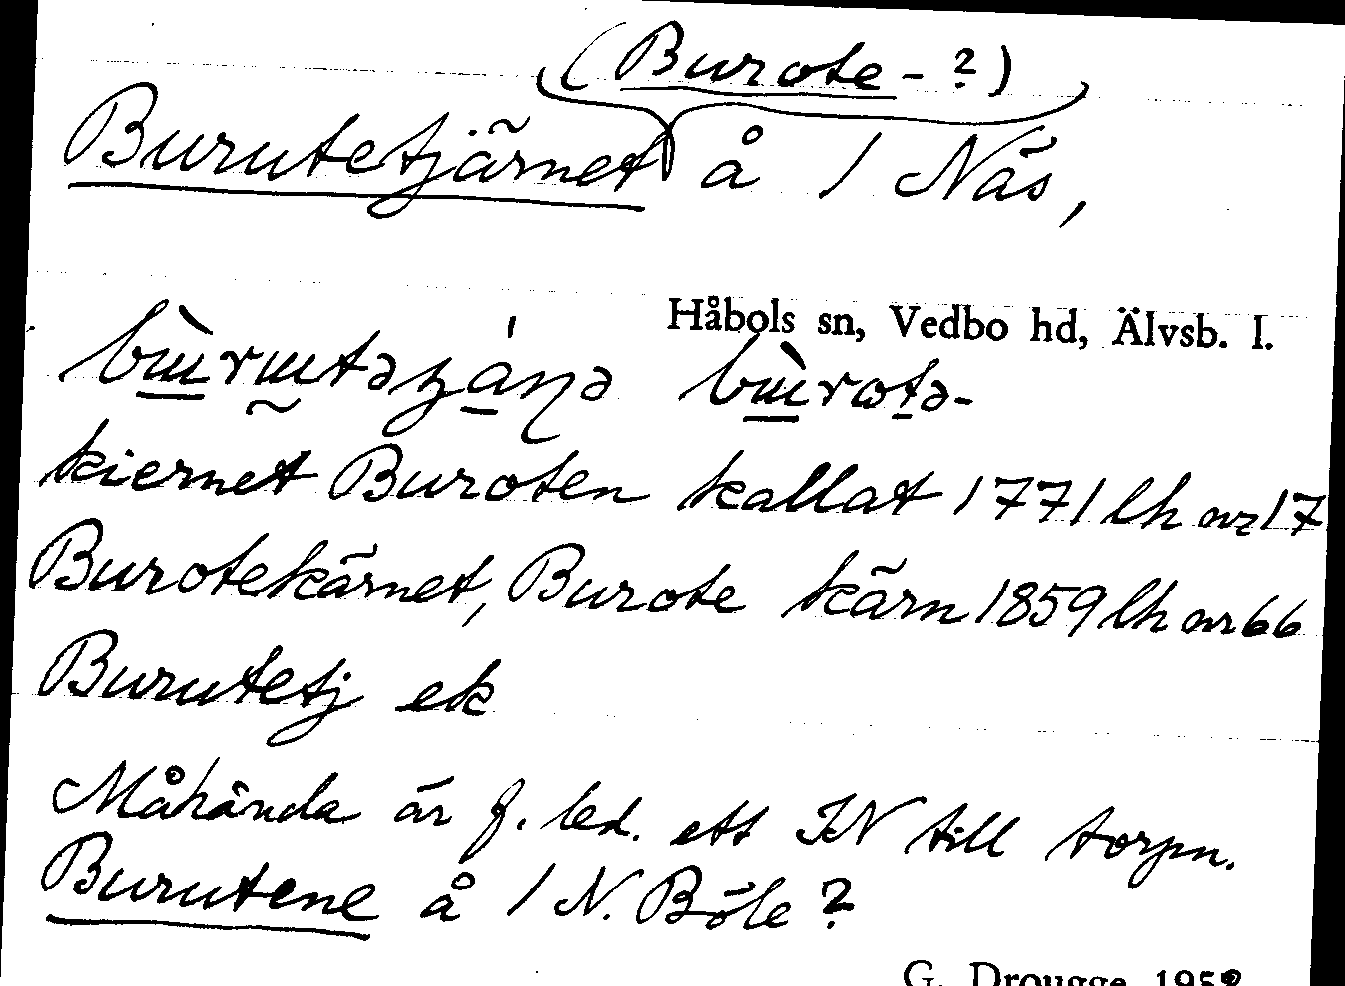 (Burote-?)
Burutetjärnet å 1 Näs,
Håbols sn, Vedbo hd, Älvsb. l.
kiernet Buroten kallat 1771 lh nr 17
Burotekärnet, Burote kärn 1859 lh nr 66
Burutetj ek
Måhända är f. led. ett IN till torpn.
Burutene å 1 N. Böle?
G. Drougge 1952